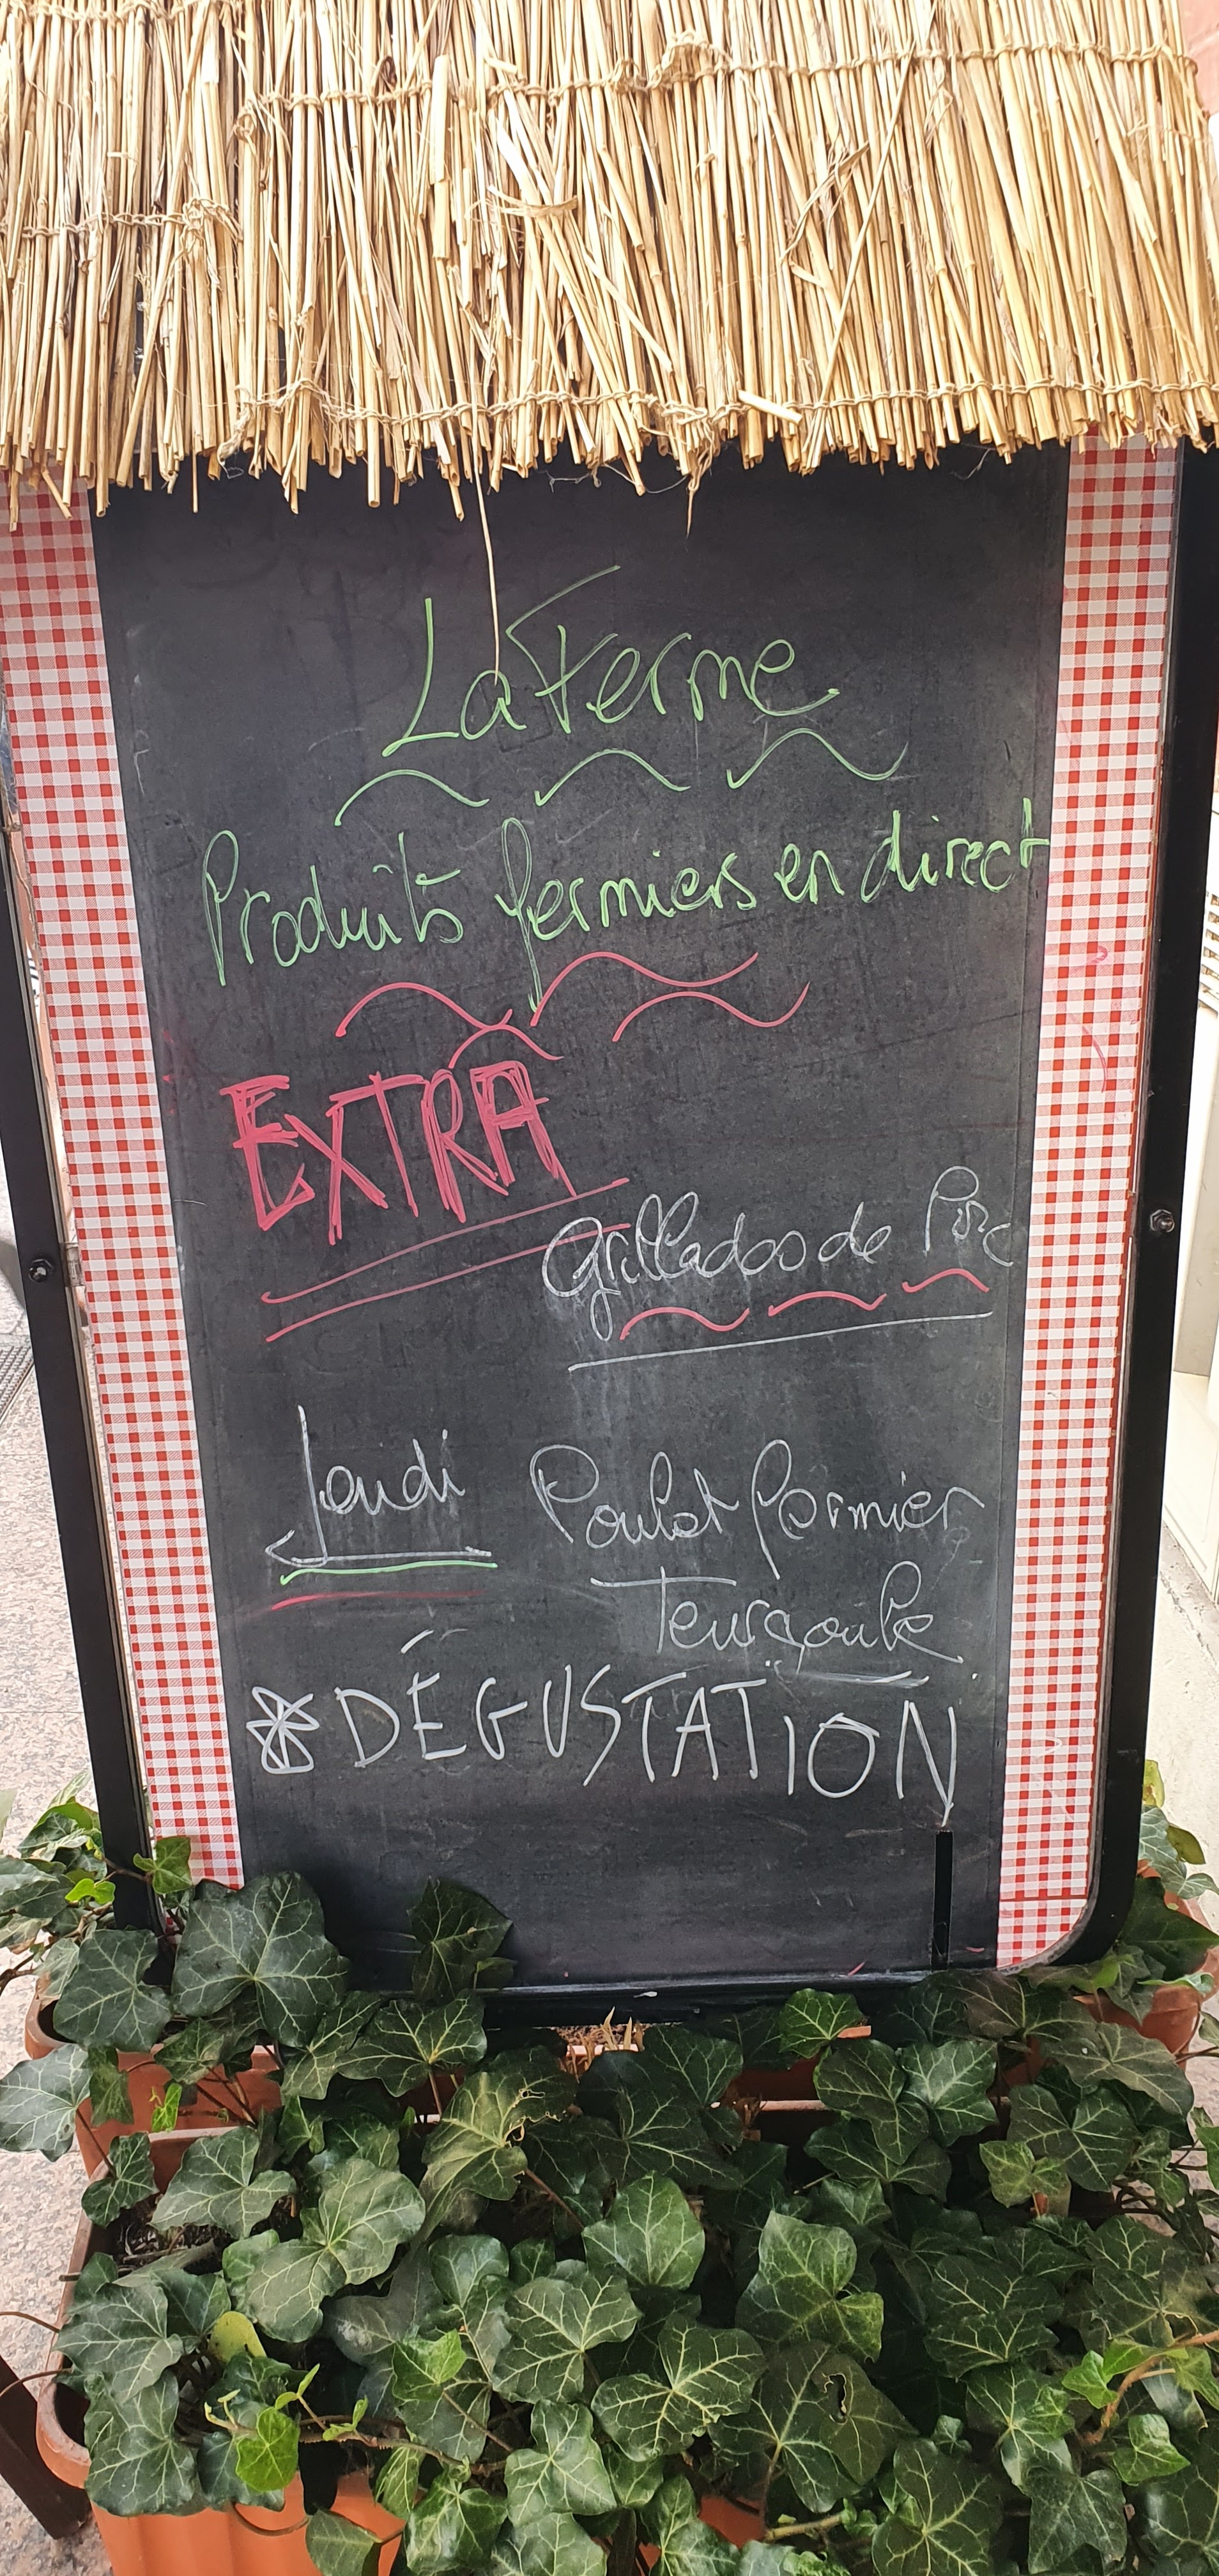 La Ferme
Produits fermiers en direct
EXTRA
Grillades de Porc
Jeudi Poulet fermier
Teurgoule
DÉGUSTATION